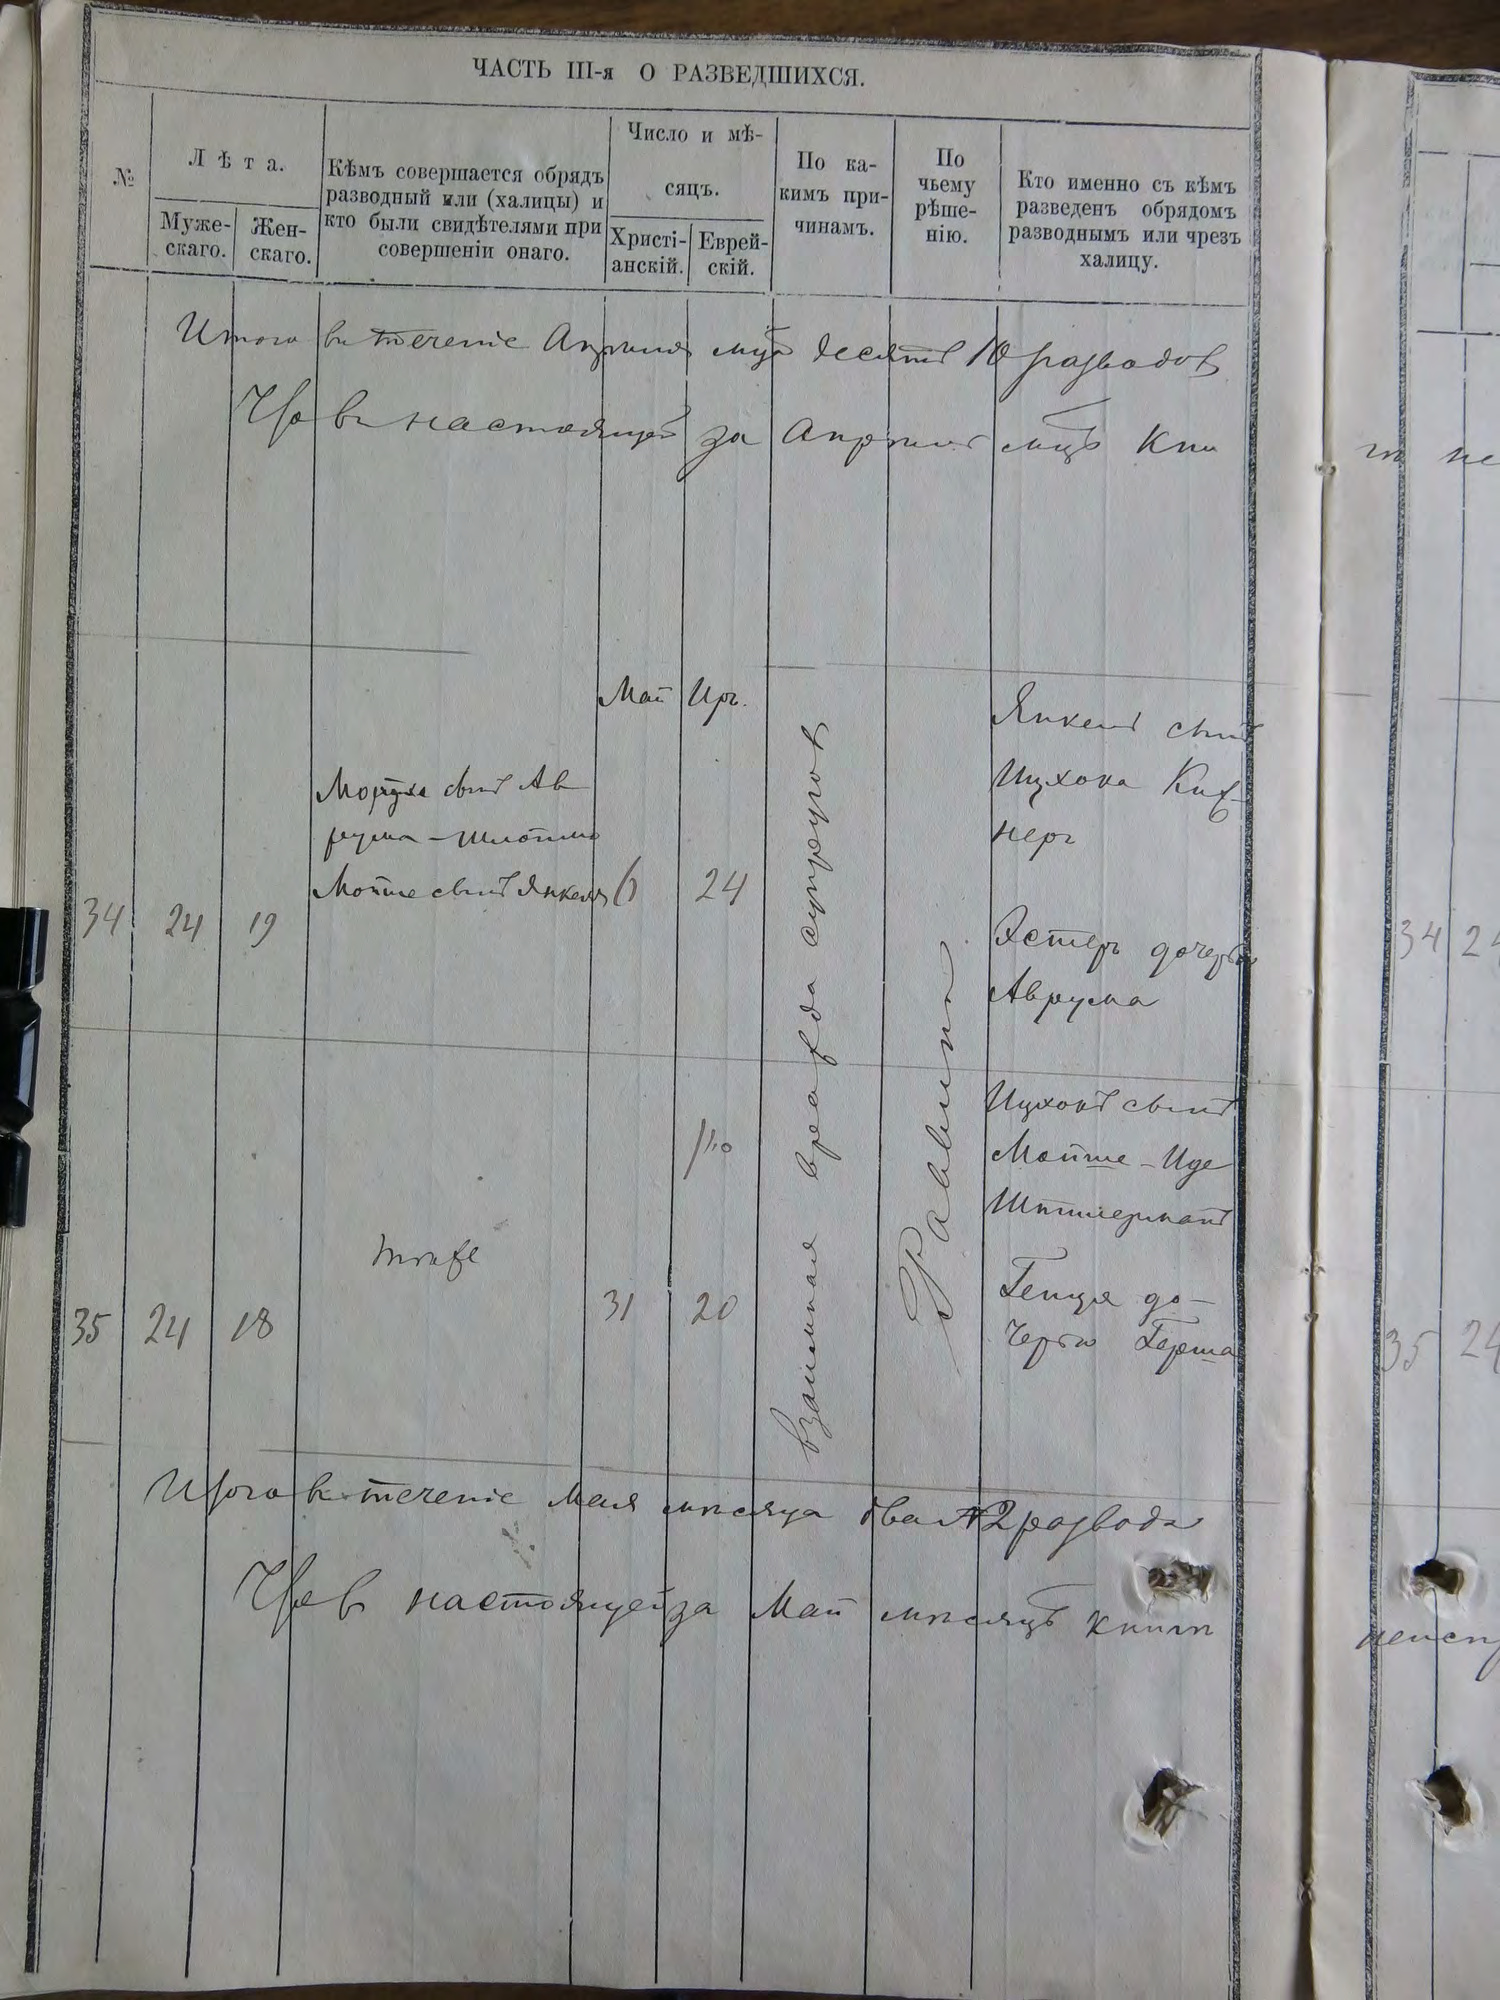 ЧАСТЬ III-я О РАЗВЕДШИХСЯ.
№
Лѣта.
Муже-
скаго.
Жен-
скаго.
Кѣмъ совершается обрядъ
разводный или (халицы) и
кто были свидѣтелями при
совершеніи онаго.
Число и мѣ-
сяцъ.
Христі-
анскій.
Еврей-
скій.
По ка-
кимъ при-
чинамъ.
По
чьему
рѣше-
нію.
Кто именно съ кѣмъ
разведенъ обрядомъ
разводнымъ или чрезъ
халицу.
Итого въ теченіе Апрѣля мца десять 10 разводовъ
Что въ настоящей за Апрѣль мцъ кни
Май Иръ.
34 24 19
Мордхе сынъ Ав
рума-Шлоймо
Мойше сынъ Янкеля
6 24
взаимная вражда супруговъ
Раввина
Янкель сынъ
Ицхока
неръ
Эстеръ дочерью
Аврума
35 24 18
тоже
31 20
Ицхокъ сынъ
Мойше-Иде
до-
черью Герша
Итого въ теченіе Мая мѣсяца два 2 развода
Что въ настоящей за Май мѣсяцъ книгѣ
34 24
35 24